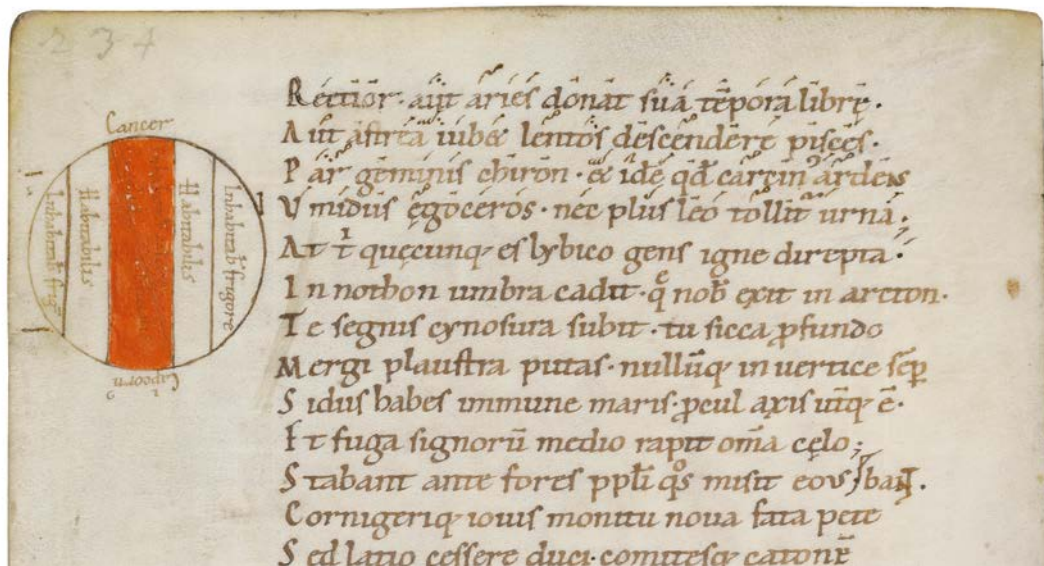 234
Cancer
Inhabitab frig
Habitabilis
Habitabiles
Inhabitab frigore
Rectior. aut aries donat sua tēpora librę.
Aut astrea iubet lentos descendere pisces.
Par geminis chiron. & idē qđ carcin' ardens
Vmidus egoceros. nec plus leo tollit urna;
At t quęcunq; es lybico gens igne direpta.
In nothon umbra cadit. q nob exit in arcton.
Te segnis cynosura subit. tu sicca ꝓfundo
Mergi plaustra putas. nullūq; in uertice sēp
Sidus habes immune maris. ꝓcul axis utq; ē.
Et fuga signorū medio rapit om̄a cęlo;
Stabant ante fores ppli qͦs misit eous
Cornigeriq; iouis monitu noua fata pete
Sed latio cessere duci. comitesq; catonē